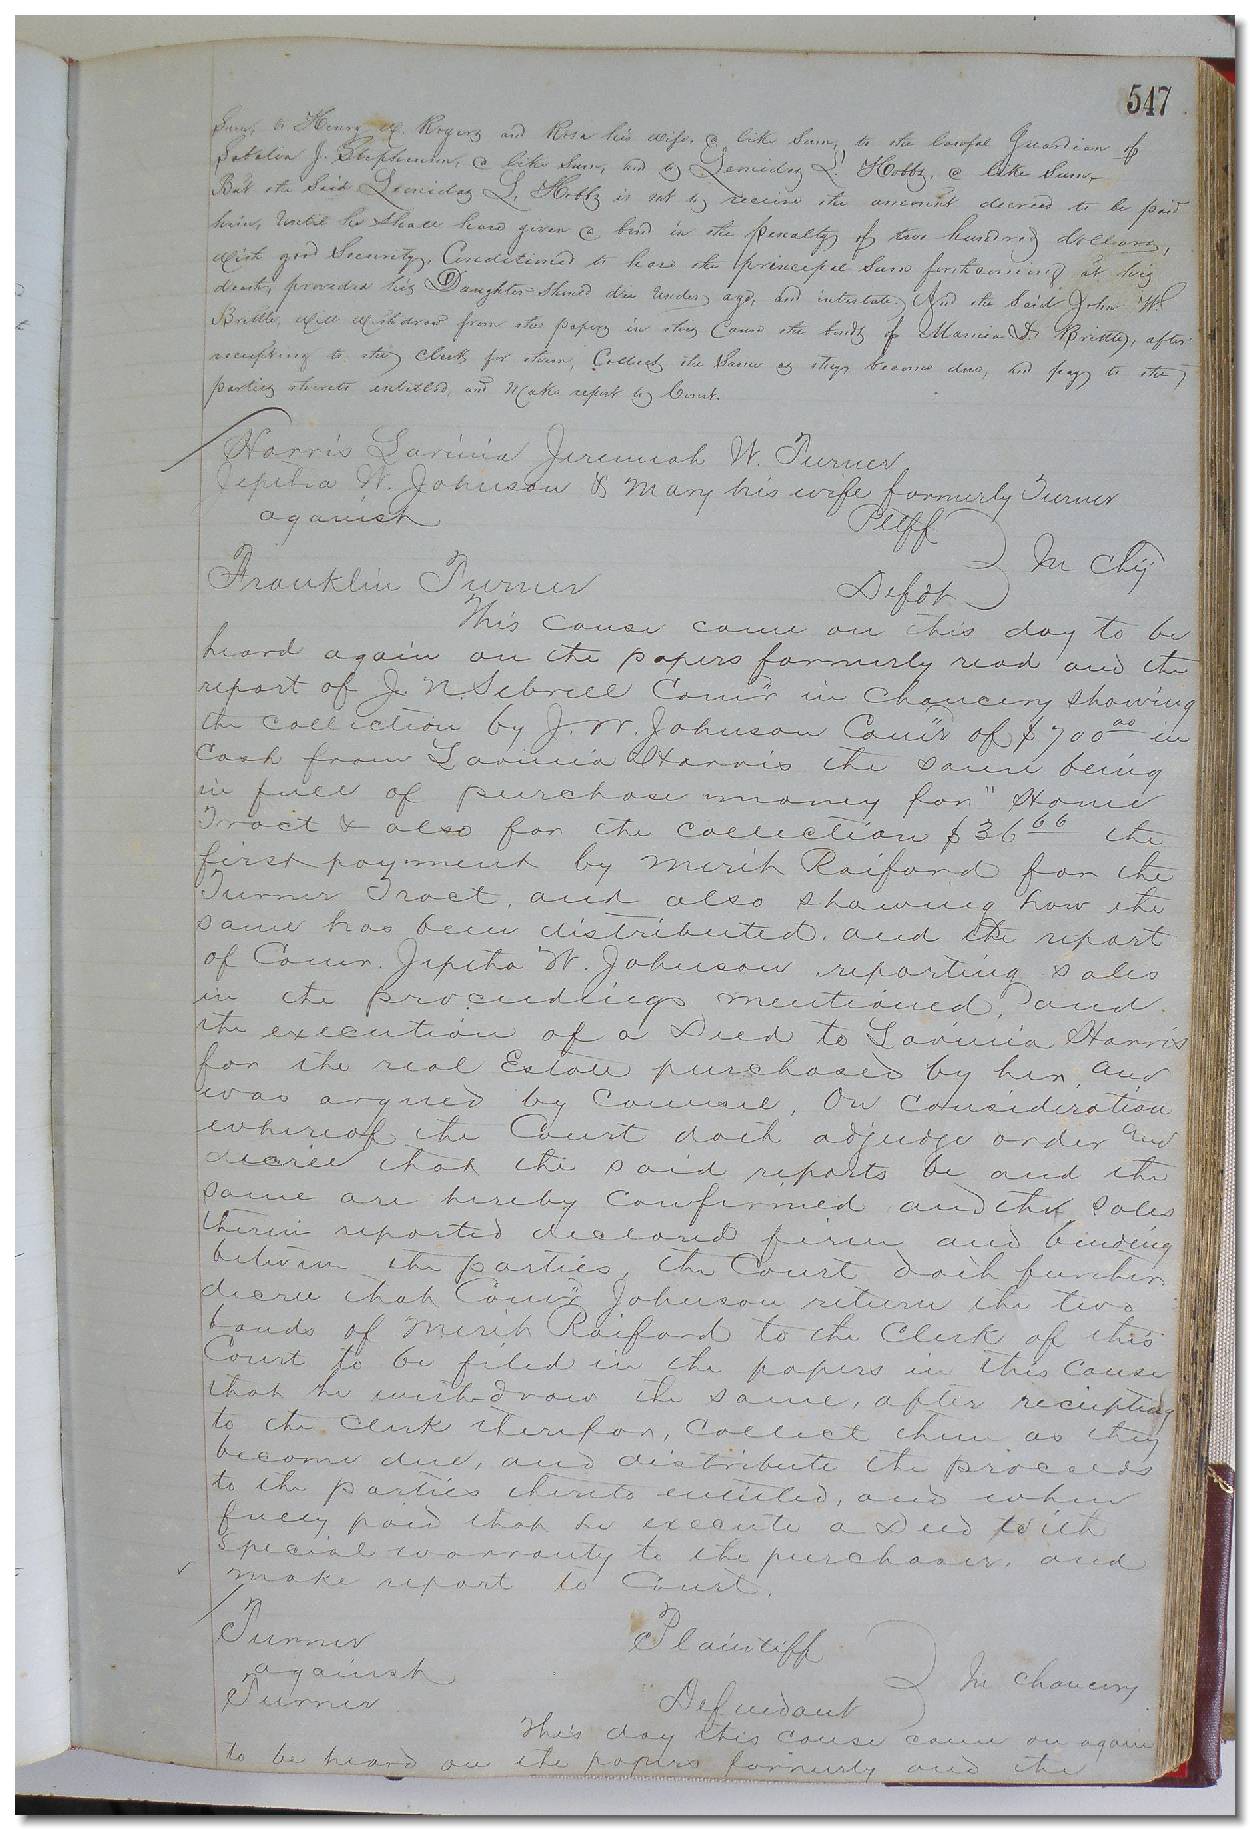 547
Sum, to Henry W. Rogers and Rosa his wife, a like Sum, to the lawful Guardian of
J. Stephenson, a like Sum, and to Leonidas L. Hobbs, a like Sum,
But the Said Leonidas L. Hobbs is not to receive the amount decreed to be paid
him, Until he Shall have given a bond in the penalty of two hundred dollars,
with good Security, Conditioned to have the principal Sum forthcoming at his
death, provided his Daughter should die Under age, and intestate, And the Said John W.
Britt, will withdraw from the papers in this Cause the bonds of after
receipting to the Clerk for them, Collect the Same as they become due, and pay to the
parties thereto entitled, and Make report to Court.
Harris Lavinia Jeremiah W. Turner
Jeptha W. Johnson & Mary his wife formerly Turner
against Pltff
In Chy
Franklin Turner Defdt
This cause came on this day to be
heard again on the papers formerly read and the
report of J. N Sebrell Comr in Chancery showing
the collection by J. W. Johnson Comr of $700 00 in
Cash from Lavinia Harris the same being
in full of purchase money for "Home
Tract & also for the collection $36 66 the
first payment by Merit Raiford for the
Turner Tract, and also showing how the
same has been distributed, and the report
of Comr. Jeptha W. Johnson reporting sales
in the proceedings mentioned, and
the execution of a Deed to Lavinia Harris
for the real Estate purchased by her, and
was argued by Counsel, On consideration
whereof the Court doth adjudge order and
decree that the said reports be and the
same are hereby Confirmed and the sales
therein reported declared firm and binding
between the parties, the Court doth further
decree that Comr Johnson return the two
bonds of Merit Raiford to the Clerk of this
Court to be filed in the papers in this Cause
that he withdraw the same, after receipting
to the Clerk therefor, Collect them as they
become due, and distribute the proceeds
to the parties thereto entitled, and when
fully paid that he execute a Deed with
Special warranty to the purchaser, and
make report to Court.
Turner Plaintiff
against In Chancery
Turner Defendant
This day this cause came on again
to be heard on the papers formerly and the